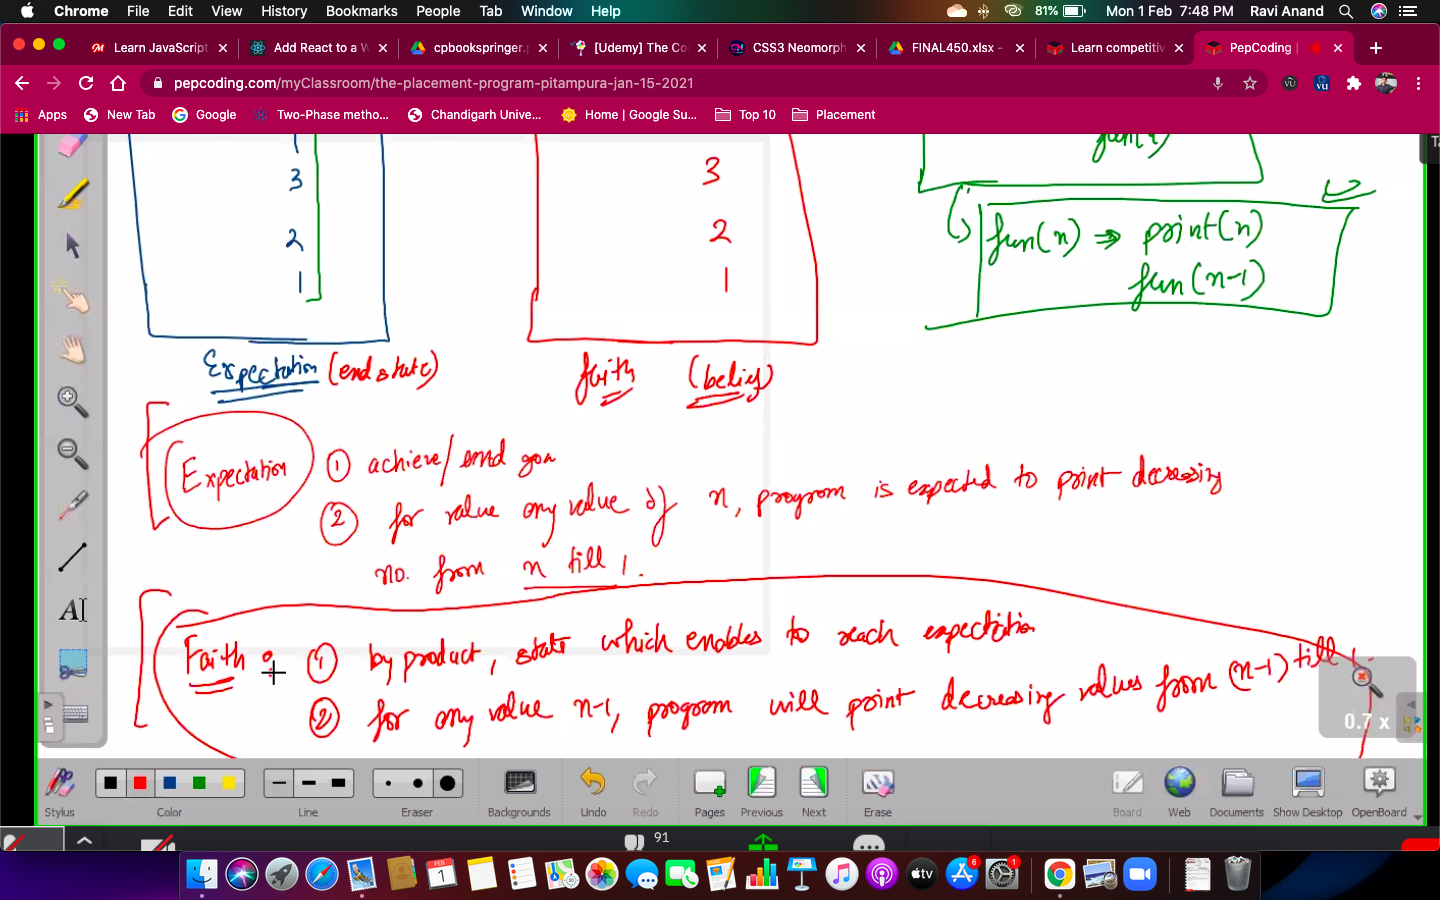 Chrome File Edit View History Bookmarks People Tab Window Help 81% Mon 1 Feb 7:48 PM Ravi Anand
Learn JavaScript Add React to a W cpbookspringer. [Udemy] The Co CSS3 Neomorph FINAL450.xlsx - Learn competitiv PepCoding |
pepcoding.com/myClassroom/the-placement-program-pitampura-jan-15-2021
Apps New Tab Google Two-Phase metho... Chandigarh Unive... Home | Google Su... Top 10 Placement
3
2
1
Expectation (end state)
3
2
1
faith (belief)
fun(n) ⇒ print(n)
fun(n-1)
Expectation ① achieve/end goa
② for value any value of n, program is expected to print decreasing
no. from n till 1.
Faith : ① by product, state which enables to reach expectation
② for any value n-1, program will print decreasing values from (n-1) till 1.
0.7 x
Stylus Color Line Eraser Backgrounds Undo Redo Pages Previous Next Erase Board Web Documents Show Desktop OpenBoard
91
FEB
1
tv
6
1